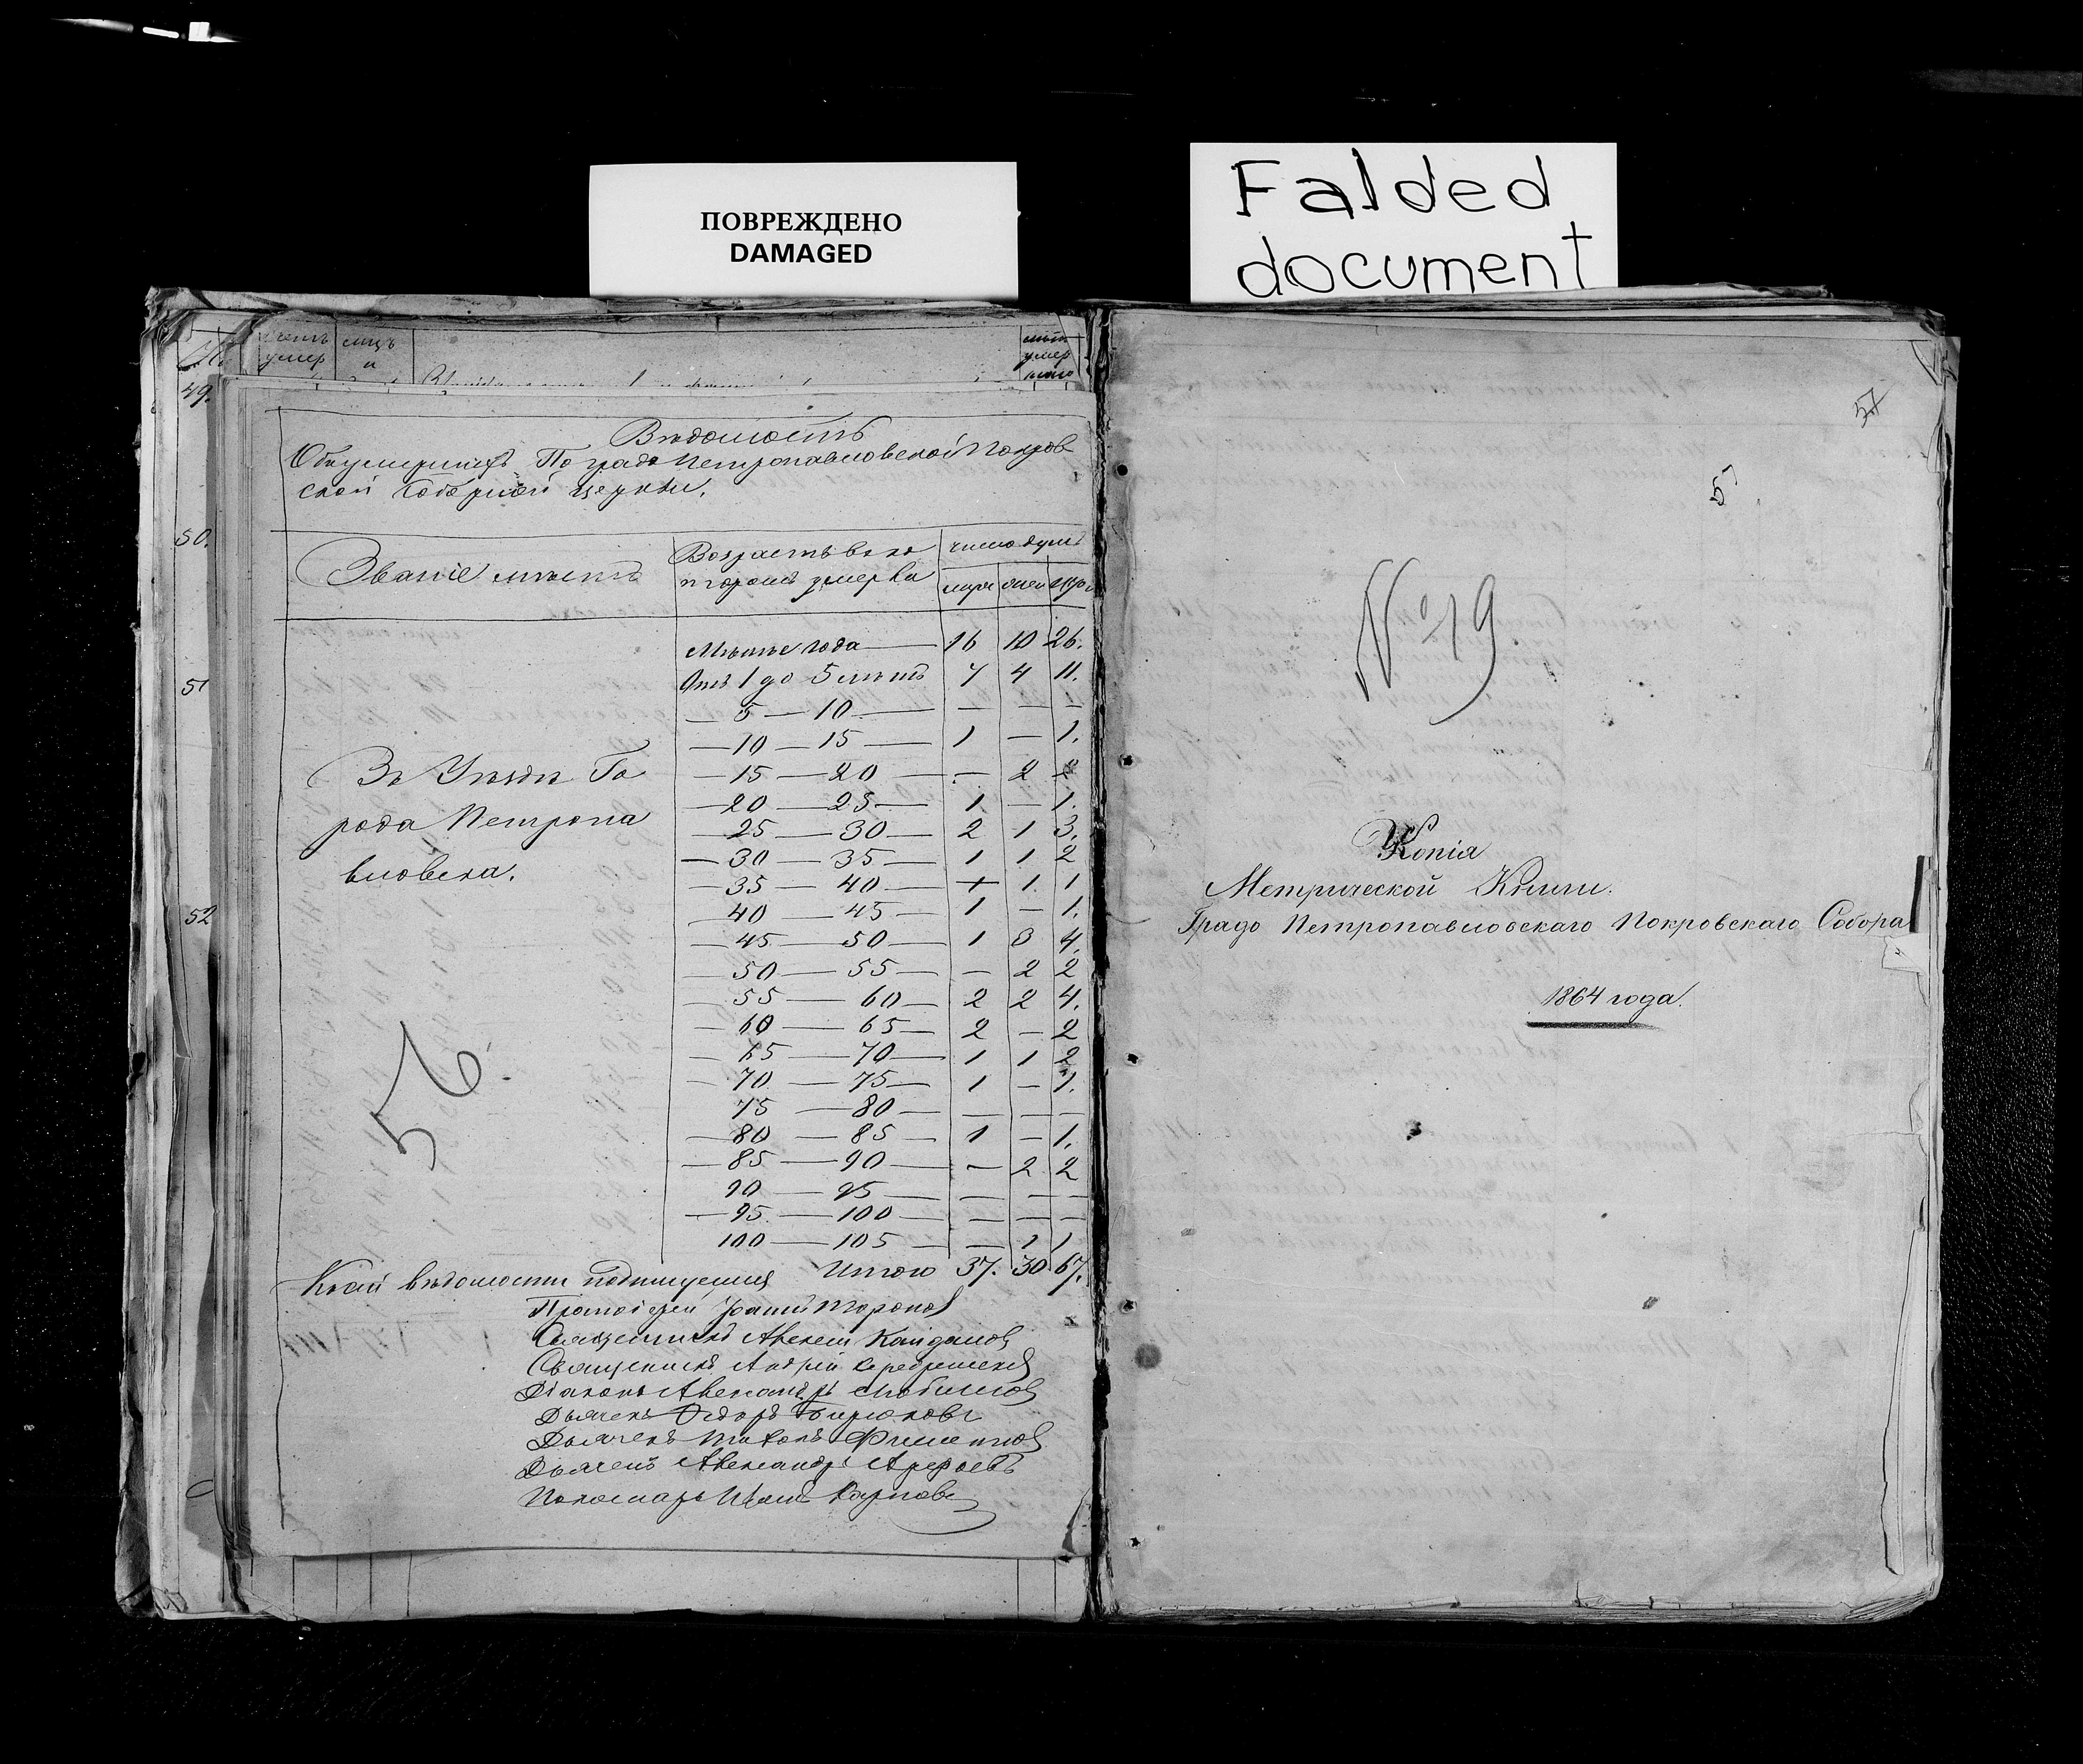 ПОВРЕЖДЕНО
DAMAGED
Falded
document
49.
50.
51
52
умер
и
умер
Вѣдомость
Объумершихъ По градо Петропавловской Покров
ской Соборной церкви.
Званіе мѣстъ
Возрастъ въ ко
торомъ умерли
число душъ
муж жен
Въ Уѣздѣ Го
рода Петропа
вловска.
Мѣньше года — 16 10 26.
Отъ 1 до 5 лѣтъ 7 4 11.
— 5 — 10 — — — —
— 10 — 15 — 1 — 1.
— 15 — 20 — — 2 2
— 20 — 25 — 1 — 1.
— 25 — 30 — 2 1 3.
— 30 — 35 — 1 1 2
— 35 — 40 — + 1. 1
— 40 — 45 — 1 — 1.
— 45 — 50 — 1 3 4.
— 50 — 55 — — 2 2
— 55 — 60 — 2 2 4.
— 60 — 65 — 2 — 2
— 65 — 70 — 1 1 2
— 70 — 75 — 1 — 1.
75 — 80 — — — —
— 80 — 85 — 1 — 1.
— 85 — 90 — — 2 2
90 — 95 — — — —
— 95 — 100 — — — —
100 — 105 — — 1 1
Итого 37. 30 67.
56.
Ксей вѣдомости подпишуемся
Протоіерей Торопов
Священникъ Алексей Кайдалов
Священикъ Андрей
Діаконъ Александръ
Дьячекъ Федоръ Бирюковъ
Дьячекъ
Дьячекъ Александръ Арефьевъ
Пономарь Карповъ
57
5
№19
Копія
Метрической Книги.
Градо Петропавловскаго Покровскаго Собора
1864 года.